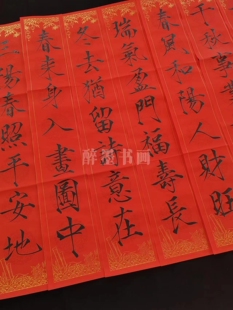 千秋事業
春風和陽人財旺
瑞氣盈門福壽長
冬去猶留詩意在
春來身入畫圖中
陽春照平安地
醉墨书画